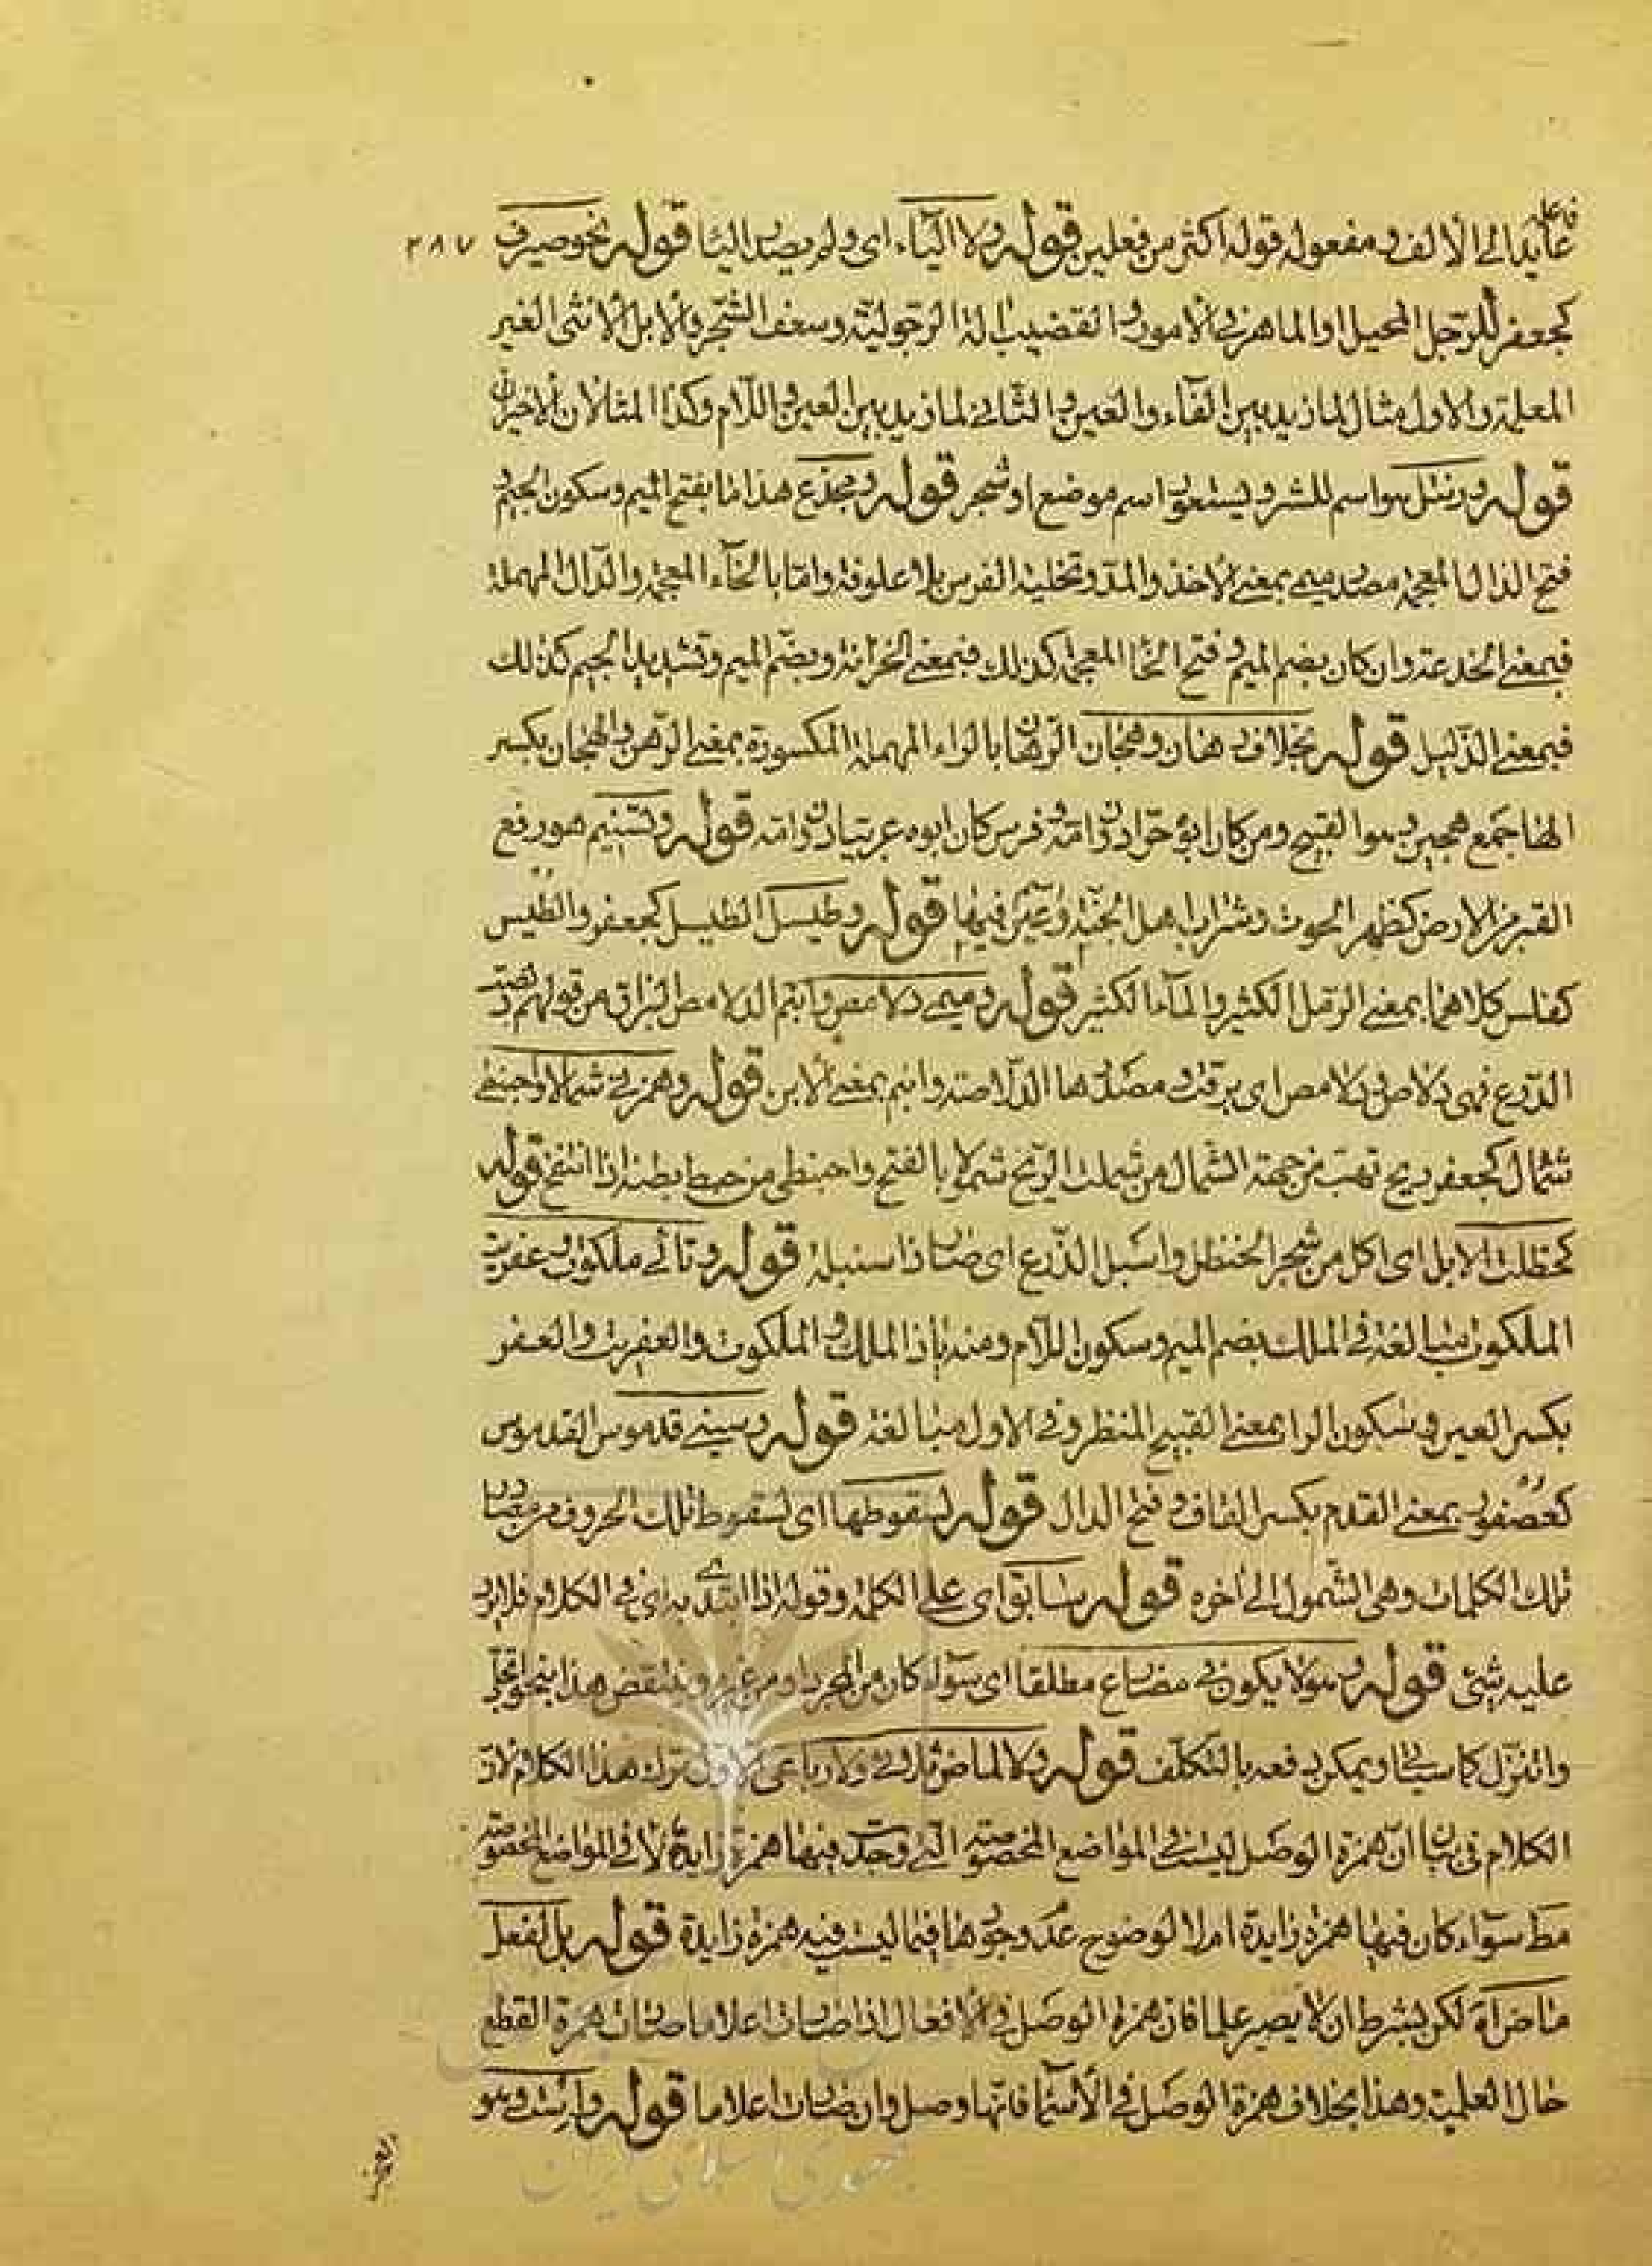 فاعله
عايد الى الالف و مفعوله قوله اكثر من فعلين قوله ولا الياء اى ولم يصل اليا قوله نحو صيرف ٢٨٧
كجعفر للرجل المحيل او الماهر فى الامور و القضيب الة الرجولية و سعف الشجر والابل الانثى الغير
المعلمة والاول مثال لما زيد بين الفاء والعين و الثانى لما زيد بين العين و اللام وكذا المثالان الاخيران
قوله ورنتل هو اسم للشر و يستعور اسم موضع او شجر قوله و مجذع هذا اما بفتح الميم وسكون الجيم و
فتح الذال المعجمة مصدر ميمى بمعنى الاخذ والمد و تخلية الفرس بلا علوفة واما بالخاء المعجمة والدال المهملة
فبمعنى الخدعة وان كان بضم الميم و فتح الخا المعجمة كذلك فبمعنى الخزانة و بضم الميم و تشديد الجيم كذلك
فبمعنى الذليل قوله بخلاف رهان وهجان الرهان بالراء المهملة المكسورة بمعنى الرهن والهجان بكسر
الها جمع هجين وهو القبيح ومن كان ابوه حرا دون امه و فرس كان ابوه عربيا دون امه قوله و تسنيم هو رفع
القبر من الارض كظهر الحوت وشراب اهل الجنة و عين فيها قوله و طيسل الطيسل كجعفر والطيس
كفلس كلاهما بمعنى الرمل الكثير والماء الكثير قوله و ميمى دلامص وابنم الدلامص البراق من قولهم دلصت
الدرع فهى دلاص و دلامص اى برقت و مصدرها الدلاصة و ابنم بمعنى الابن قوله و همزتى شمال واحبنطى
شمال كجعفر ريح تهب من جهة الشمال من شملت الريح شمولا بالفتح واحبنطى من حبط بطنه اذا انتفخ قوله
كحظلت الابل اى اكل من شجر الحنظل واسبل الذرع اى صار ذا سنبلة قوله و تائى ملكوت و عفريت
الملكوت مبالغة فى الملك بضم الميم وسكون اللام ومنه يا ذا الملك و الملكوت والعفريت والعفر
بكسر العين و سكون الرا بمعنى القبيح المنظر و فى الاول مبالغة قوله و سينى قدموس القدموس
كعصفور بمعنى القدم بكسر القاف و فتح الدال قوله لسقوطها اى لسقوط تلك الحروف من مصادر
تلك الكلمات وهى الشمول الى اخره قوله سابق اى على الكلمة و قوله اذا ابتدى به اى فى الكلام فلا يرد
عليه شئ قوله ولا يكون فى مضارع مطلقا اى سواء كان من المجرد او من غيره و ينتقض هذا بنحو اتجلى
واتنزل كما سياتى و يمكن دفعه بالتكلف قوله ولا لماض ثلاثى ولا رباعى الاولى ترك هذا الكلام لان
الكلام فى بيان ان همزة الوصل ليست فى المواضع المخصوصة التى وجدت فيها همزة زايدة لا فى المواضع المخصوصة
مط سواء كان فيها همزة زايدة ام لا لوضوح عدم وجودها فيما ليست فيه همزة زايدة قوله بل لفعل
ماض اه لكن بشرط ان لا يصير علما فان همزة الوصل فى الافعال اذا صارت اعلاما صارت همزة القطع
حال العلمية وهذا بخلاف همزة الوصل فى الاسماء فانها وصل وان صارت اعلاما قوله و است وهو